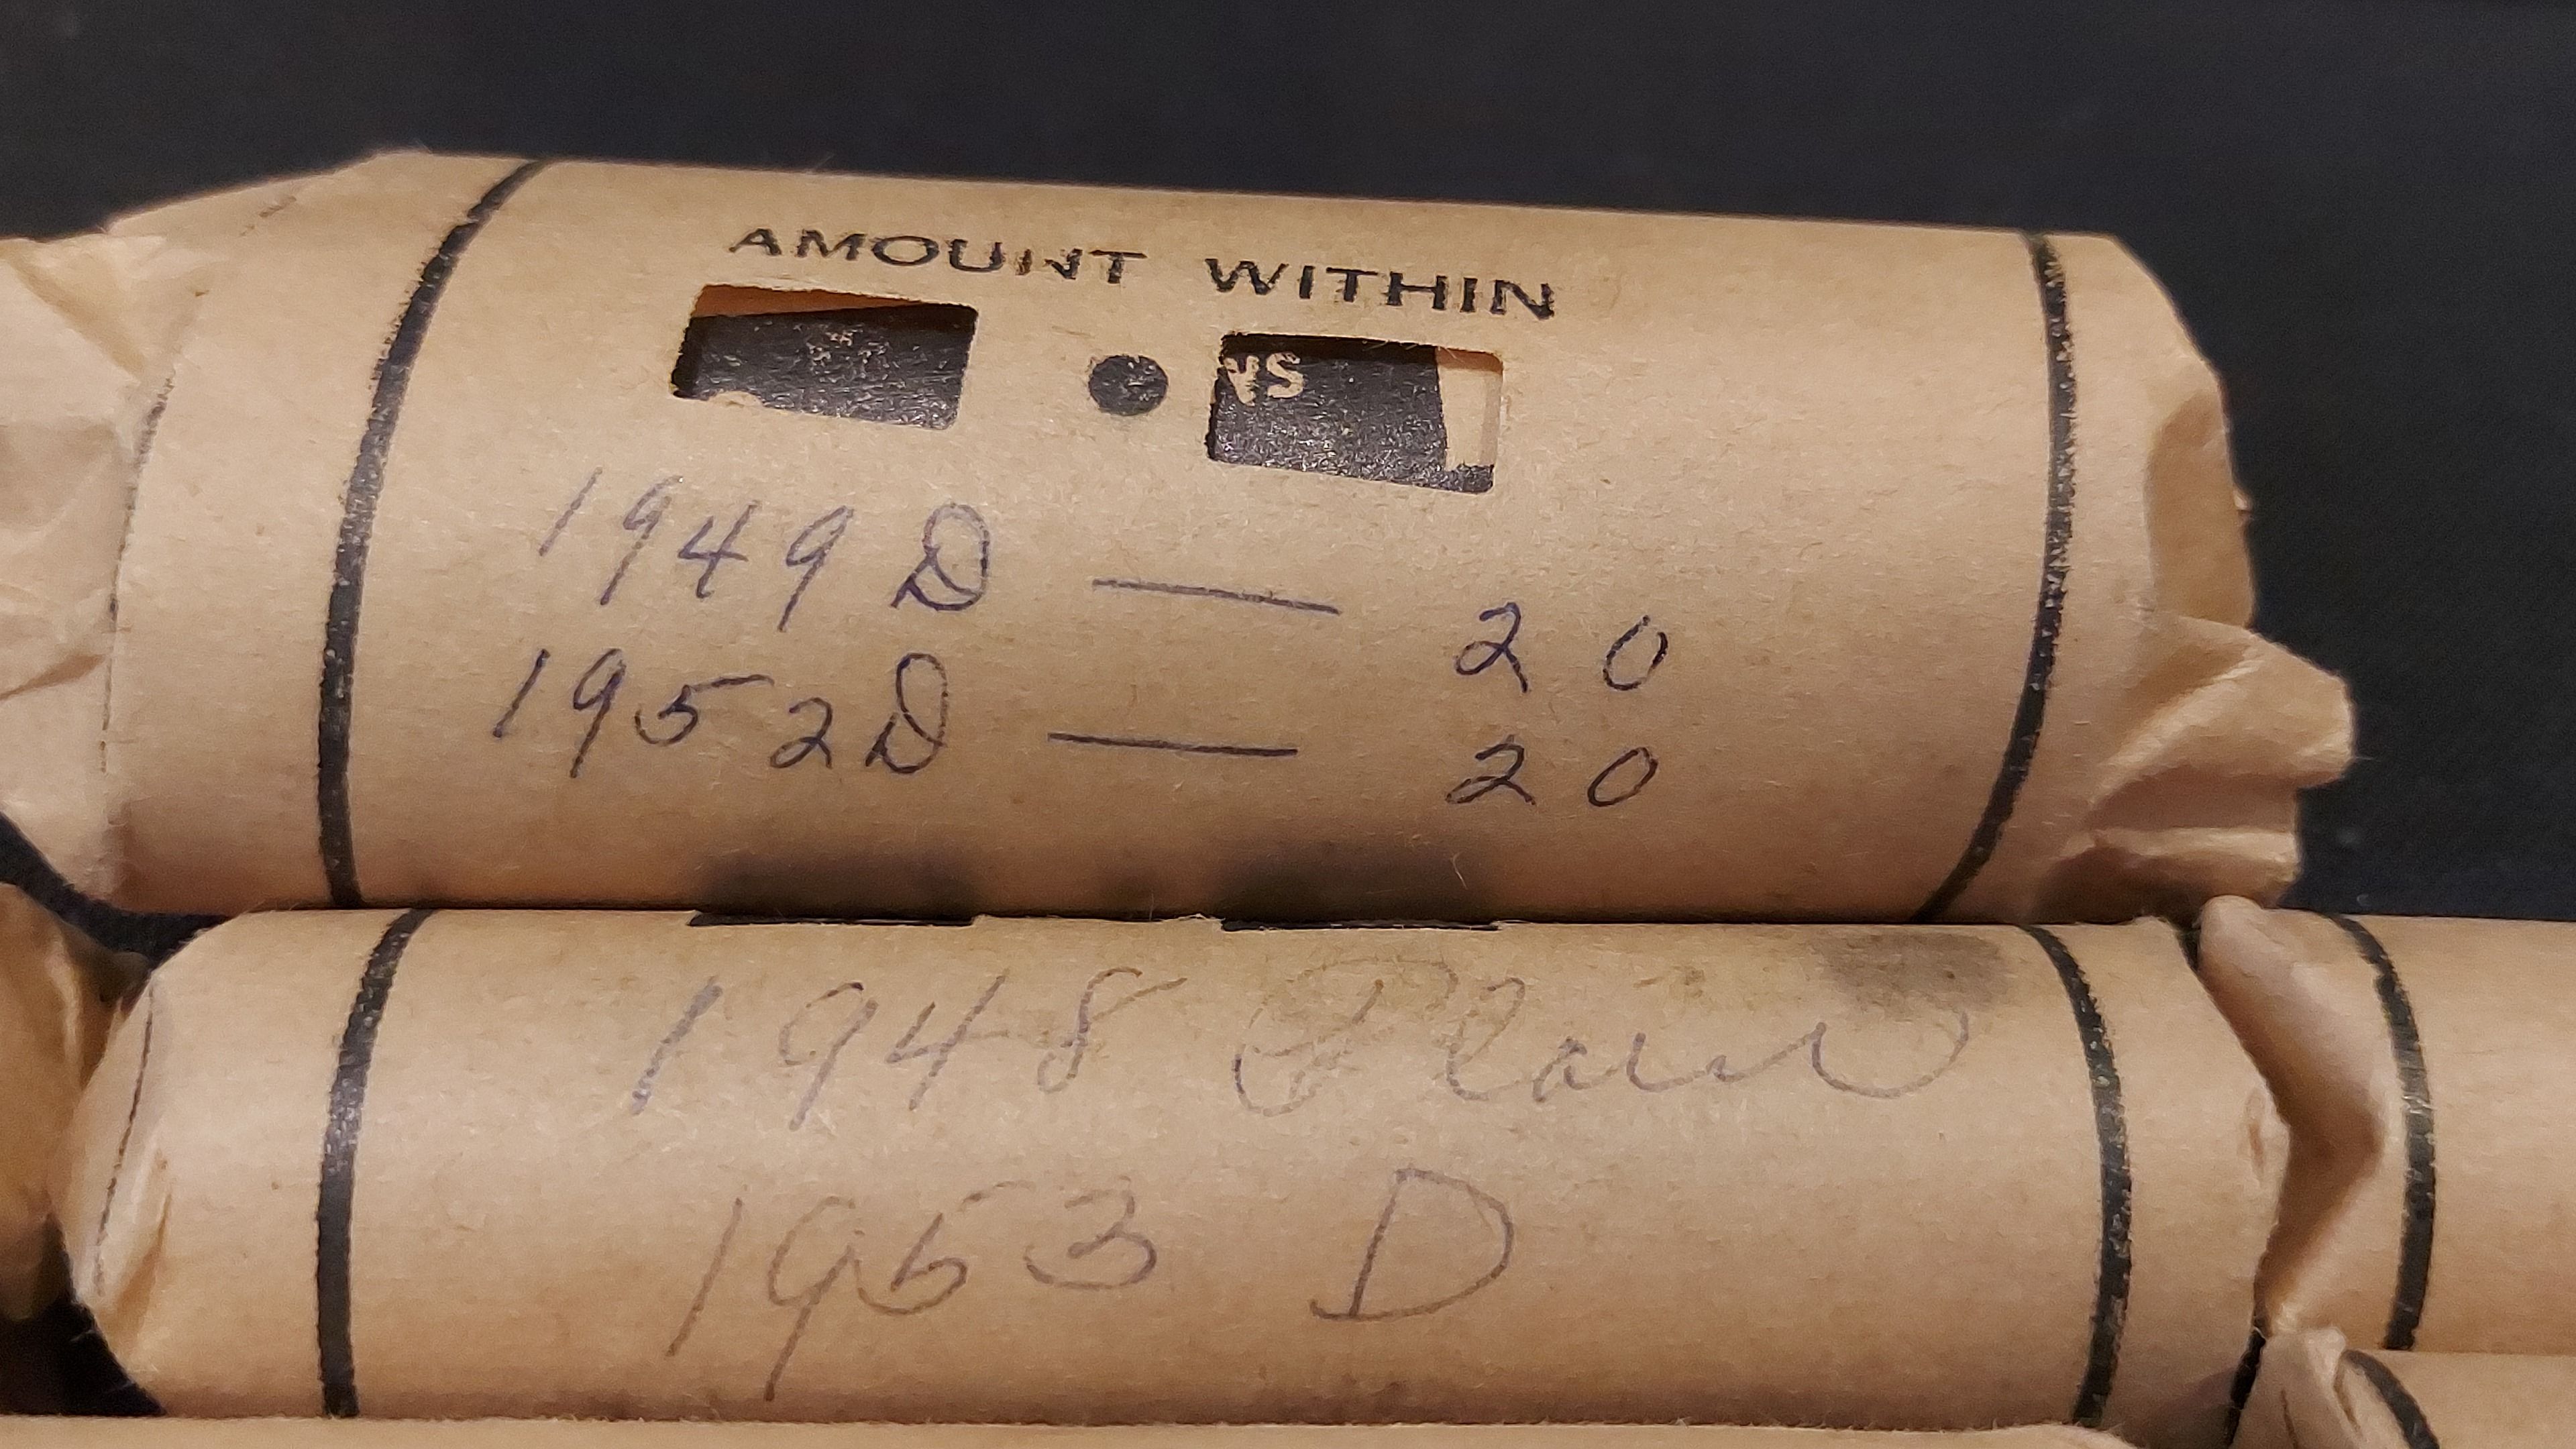 AMOUNT WITHIN
1949 D — 20
1952 D — 20
1948 Plain
1953 D